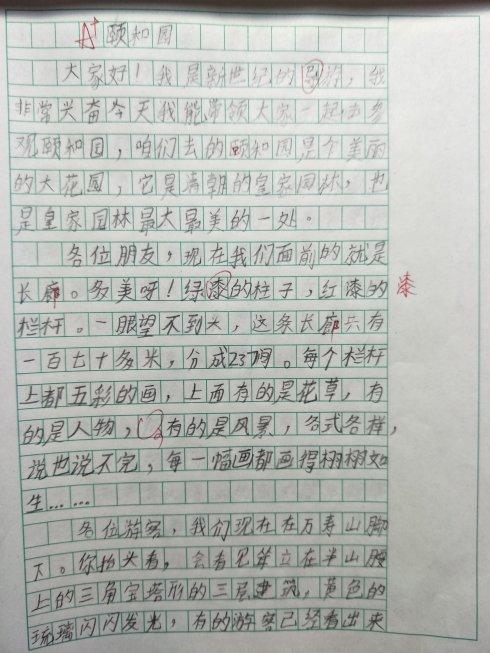 A+ 颐和园
大家好！我是新世纪的导游，我
非常兴奋今天我能带领大家一起去参
观颐和园，咱们去的颐和园是个美丽
的大花园，它是清朝的皇家园林，也
是皇家园林最大最美的一处。
各位朋友，现在我们面前的就是
长廊。多美呀！绿漆的柱子，红漆的 漆
栏杆。一眼望不到头，这条长廊共有
一百七十多米，分成237间。每个栏杆
上都五彩的画，上面有的是花草，有
的是人物，有的是风景，各式各样，
说也说不完，每一幅画都画得栩栩如
生……
各位游客，我们现在在万寿山脚
下。你抬头看，会看见耸立在半山腰
上的三角宝塔形的三层建筑，黄色的
琉璃闪闪发光，有的游客已经看出来